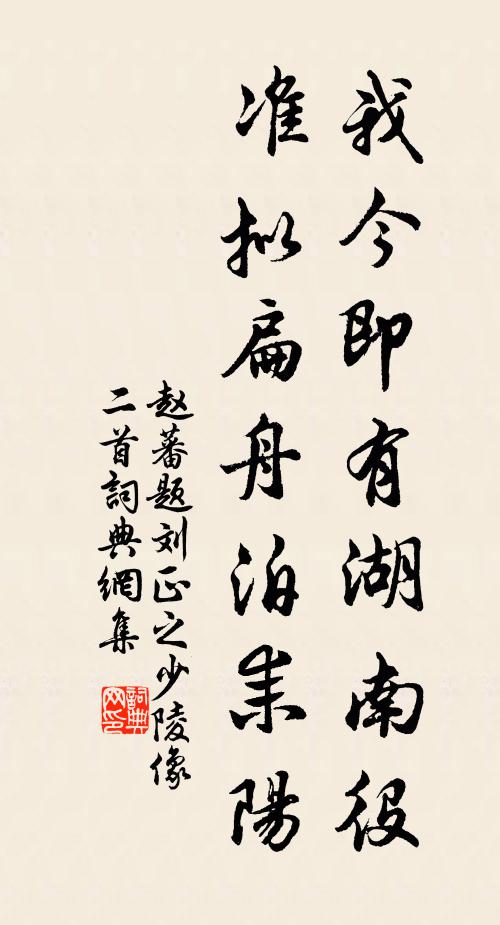 我今即有湖南役
准拟扁舟泊耒陽
赵蕃题刘正之少陵像
二首詞典網集
詞典網印